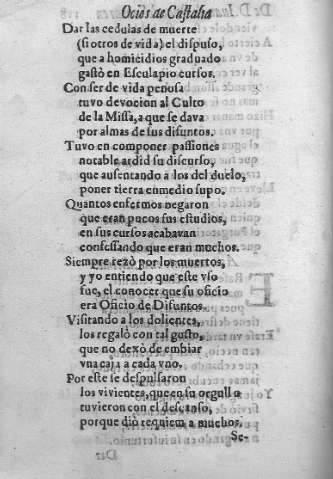 Ocios de Castalia
Dar las cedulas de muerte
(si otros de vida) el dispuso,
que a homicidios graduado
gastò en Esculapio cursos.
Con ser de vida penosa
tuvo devocion al Culto
de la Missa, a que se dava
por almas de sus difuntos.
Tuvo en componer passiones
notable ardid su discurso,
que ausentando a los del duelo,
poner tierra enmedio supo.
Quantos enfermos negaron
que eran pocos sus estudios,
en sus cursos acabavan
confessando que eran muchos.
Siempre rezò por los muertos,
y yo entiendo que este vso
fue, el conocer que su oficio
era Oficio de Difuntos.
Visitando a los dolientes,
los regalò con tal gusto,
que no dexò de embiar
vna caja a cada vno.
Por este se despulsaron
los vivientes, que en su orgullo
tuvieron con el descanso,
porque diò requiem a muchos.
Se-